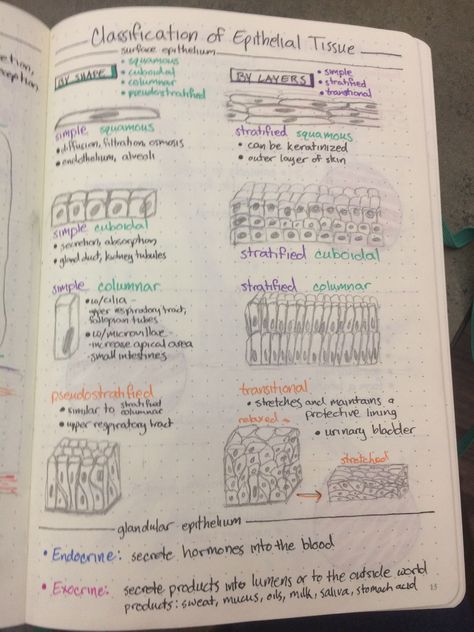 Classification of Epithelial Tissue
surface epithelium
BY SHAPE
• squamous
• cuboidal
• columnar
• pseudostratified
BY LAYERS
• simple
• stratified
• transitional
simple squamous
• diffusion, filtration, osmosis
• endothelium, alveoli
stratified squamous
• can be keratinized
• outer layer of skin
simple cuboidal
• secretion, absorption
• gland duct, kidney tubules
stratified cuboidal
simple columnar
• w/cilia -
upper respiratory tract,
fallopian tubes
• w/microvillae -
-increase apical area
-small intestines
stratified columnar
pseudostratified
• similar to stratified columnar
• upper respiratory tract
transitional
• stretches and maintains a
protective lining
• urinary bladder
relaxed
stretched
glandular epithelium
• Endocrine: secrete hormones into the blood
• Exocrine: secrete products into lumens or to the outside world
products: sweat, mucus, oils, milk, saliva, stomach acid
13